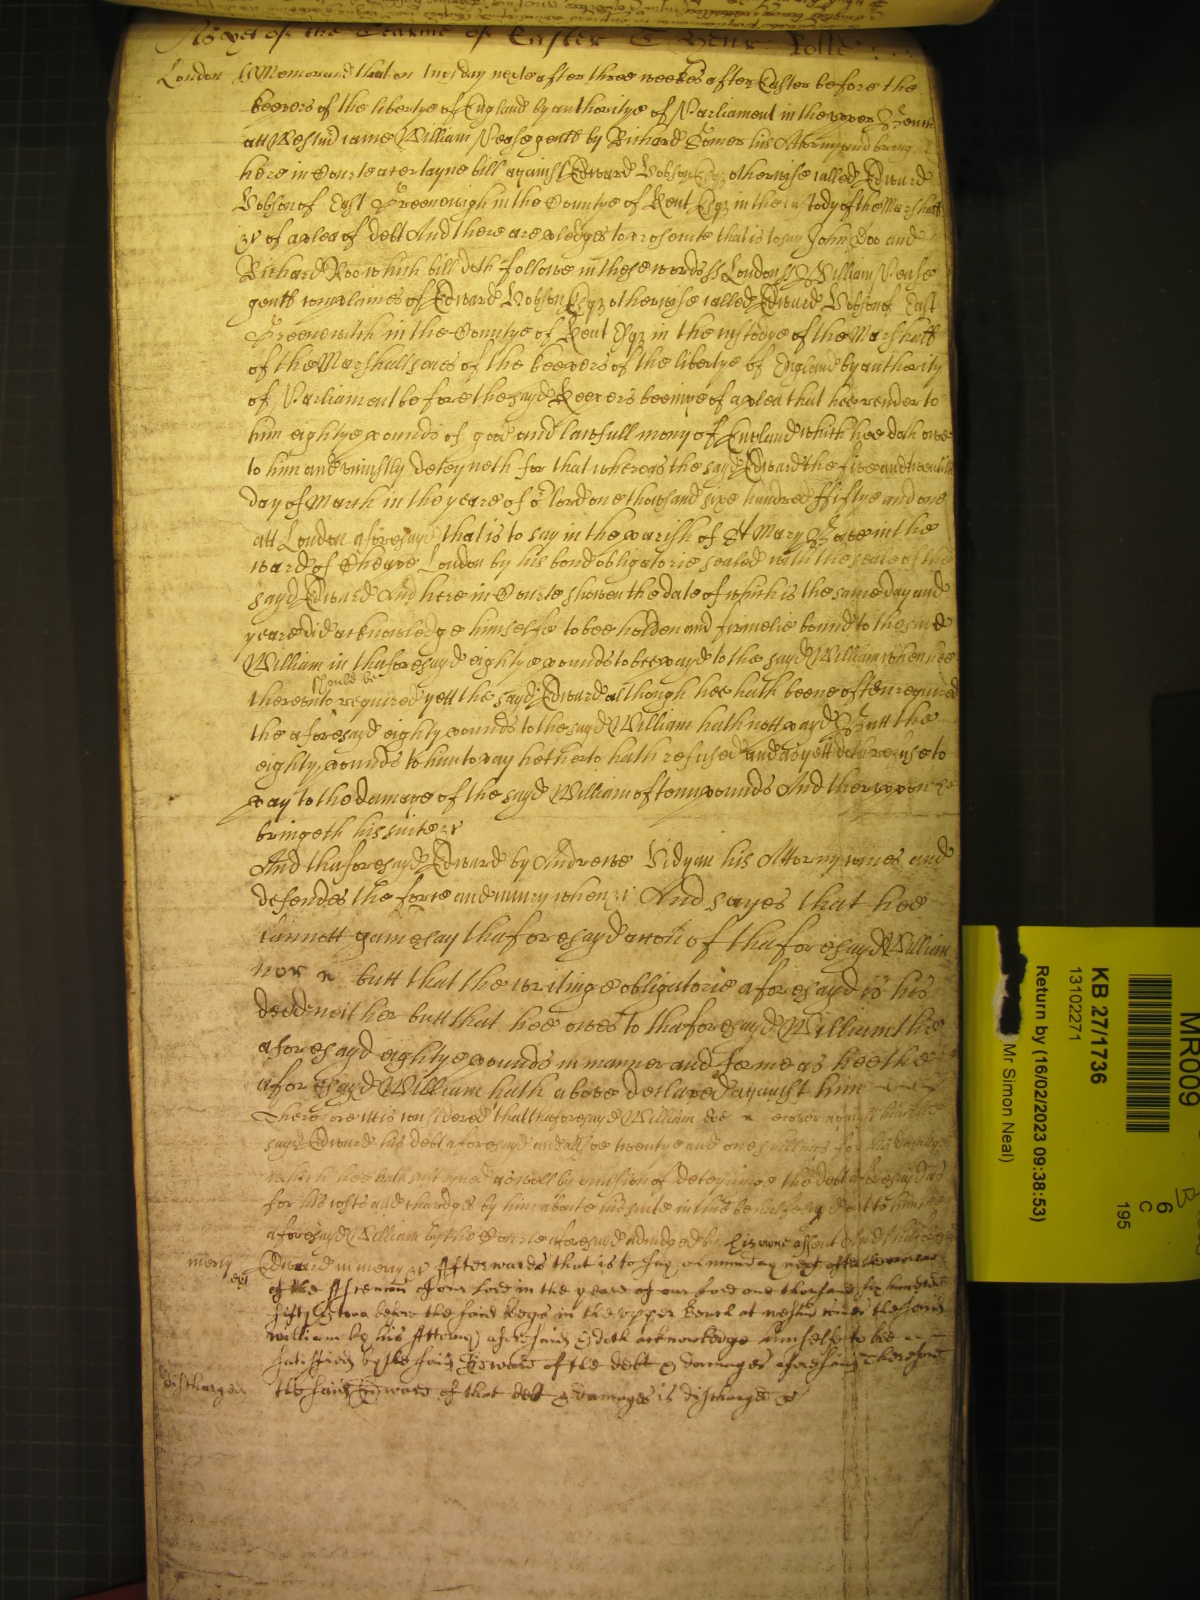 As yet of the Tearme of Easter
London ss Memorand that on Tuesday next after three weekes after Easter before the
keepers of the libertye of England by authoritye of Parliament in the upper Bench
att Westm came William Pease gent by Richard his Attorny and broug
here in Courte a certayne bill against Edward Esqr otherwise called Edward
of East Greenewigh in the Countye of Kent Esqr in the custody of the Marshall
&c of a plea of debt And there are pledges to prosecute that is to say John Doo and
Richard Roo which bill doth followe in these words ss London ss William Pease
gent complaines of Edward Esqr otherwise called Edward of East
Greenewich in the Countye of Kent Esqr in the custodye of the Marshall
of the Marshallsaes of the keepers of the libertye of England by authority
of Parliament before the sayd Keepers beeinge of a plea that hee render to
him eightye pounds of good and lawfull mony of England which hee doth owe
to him and uniustly deteyneth for that whereas the sayd Edward the five and twentith
day of March in the yeare of or lord one thowsand sixe hundred fiftye and one
att London aforesayd that is to say in the parish of St Mary Bowe in the
ward of Cheape London by his bond obligatorie sealed with the seale of the
sayd Edward And here in Courte shewen the date of which is the same day and
yeare did acknowledge himselfe to bee holden and firmelie bound to the sayd
William in thaforesayd eightye pounds to bee payd to the sayd William when hee
should be
thereunto required yett the sayd Edward although hee hath beene often required
the aforesayd eighty pounds to the sayd William hath nott payd Butt the
eighty pounds to him to pay hetherto hath refused and as yett doth refuse to
pay to the damage of the sayd William of tenn pounds And thereupon he
bringeth his suite &c
And thaforesayd Edward by Andrewe Vidyan his Attorny comes and
defendes the force and iniury when &c And sayes that hee
cannott gainesay thaforesayd accon of thaforesayd William
nor butt that the writinge obligatorie aforesayd is his
deed neither butt that hee owes to thaforesayd William the
aforesayd eightye pounds in manner and forme as hee the
aforesayd William hath above declared against him
Therefore itt is considered that thaforesayd William doe recover against the
sayd Edward his debt aforesayd and allsoe twentye and one shillings for his damages
which hee hath susteyned aswell by occasion of deteyninge the debt aforesayd as
for his costs and chardges by him about his suite in this behalfe layd out to him the
aforesayd William by the Courte aforesayd adiudged by his owne assent And the sayd
mercy Edward in mercy &c Afterwards that is to say on munday next after
of the Assention of our lord in the yeare of our lord one thousand six hundred
fifty & two before the said keeps in the upper bench at westm comes the said
William by his Attorny aforesaid & doth acknowledge himselfe to bee
satisfied by the said Edward of the debt & damages aforesaid Therefore
discharged the said Edward of that debt & damages is discharged &c
MR009
KB 27/1736
13102271
Return by (16/02/2023 09:38:53)
Mr Simon Neal)
6
C
195